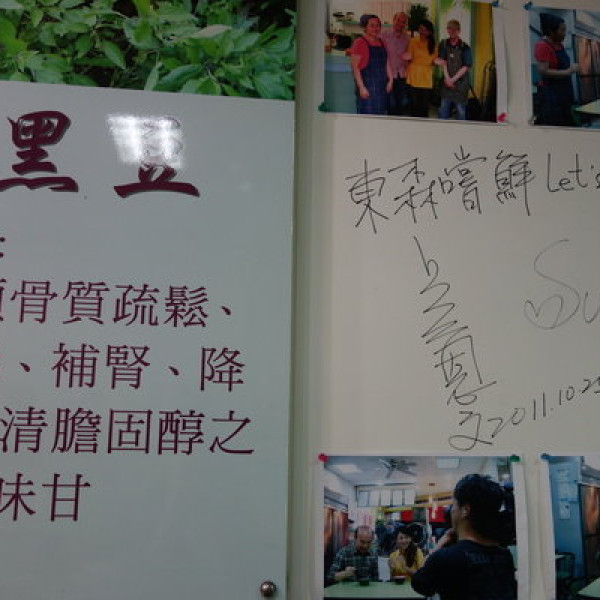 黑豆
:
骨質疏鬆、
、補腎、降
清膽固醇之
味甘
東森嚐鮮 Let's
Su
2011.10.25